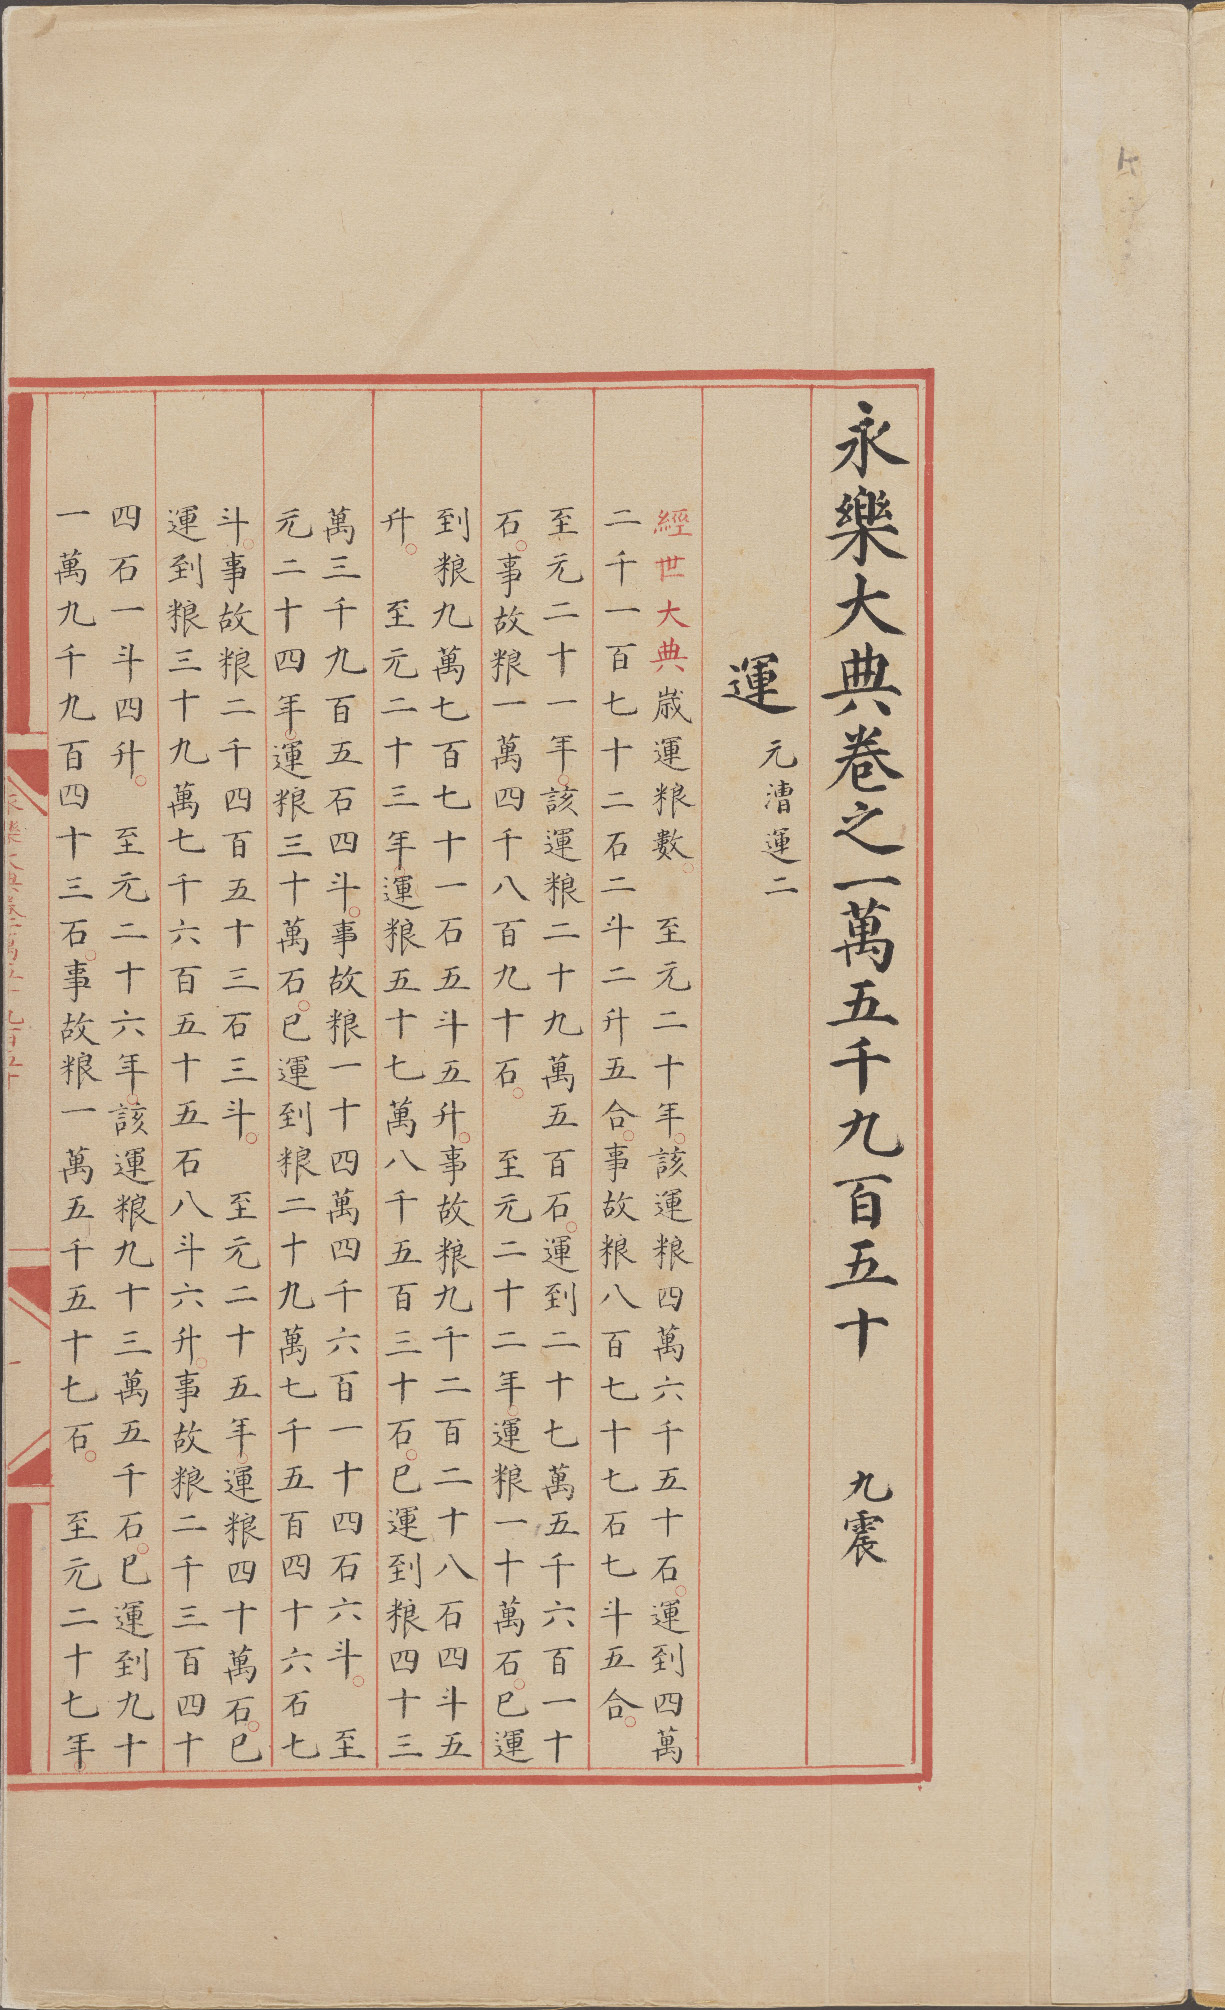 永樂大典卷之一萬五千九百五十 九震
運 元漕運二
經世大典歲運粮數。 至元二十年。該運粮四萬六千五十石。運到四萬
二千一百七十二石二斗二升五合。事故粮八百七十七石七斗五合。
至元二十一年。該運粮二十九萬五百石。運到二十七萬五千六百一十
石。事故粮一萬四千八百九十石。 至元二十二年。運粮一十萬石。已運
到粮九萬七百七十一石五斗五升。事故粮九千二百二十八石四斗五
升。 至元二十三年。運粮五十七萬八千五百三十石。已運到粮四十三
萬三千九百五石四斗。事故粮一十四萬四千六百一十四石六斗。 至
元二十四年。運粮三十萬石。已運到粮二十九萬七千五百四十六石七
斗。事故粮二千四百五十三石三斗。 至元二十五年。運粮四十萬石。已
運到粮三十九萬七千六百五十五石八斗六升。事故粮二千三百四十
四石一斗四升。 至元二十六年。該運粮九十三萬五千石。已運到九十
一萬九千九百四十三石。事故粮一萬五千五十七石。 至元二十七年。